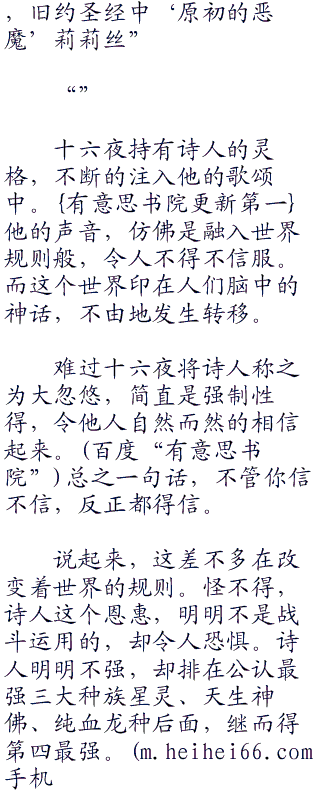 ，旧约圣经中‘原初的恶
魔’莉莉丝”
“”
十六夜持有诗人的灵
格，不断的注入他的歌颂
中。{有意思书院更新第一}
他的声音，仿佛是融入世界
规则般，令人不得不信服。
而这个世界印在人们脑中的
神话，不由地发生转移。
难过十六夜将诗人称之
为大忽悠，简直是强制性
得，令他人自然而然的相信
起来。(百度“有意思书
院”)总之一句话，不管你信
不信，反正都得信。
说起来，这差不多在改
变着世界的规则。怪不得，
诗人这个恩惠，明明不是战
斗运用的，却令人恐惧。诗
人明明不强，却排在公认最
强三大种族星灵、天生神
佛、纯血龙种后面，继而得
第四最强。(m.heihei66.com
手机